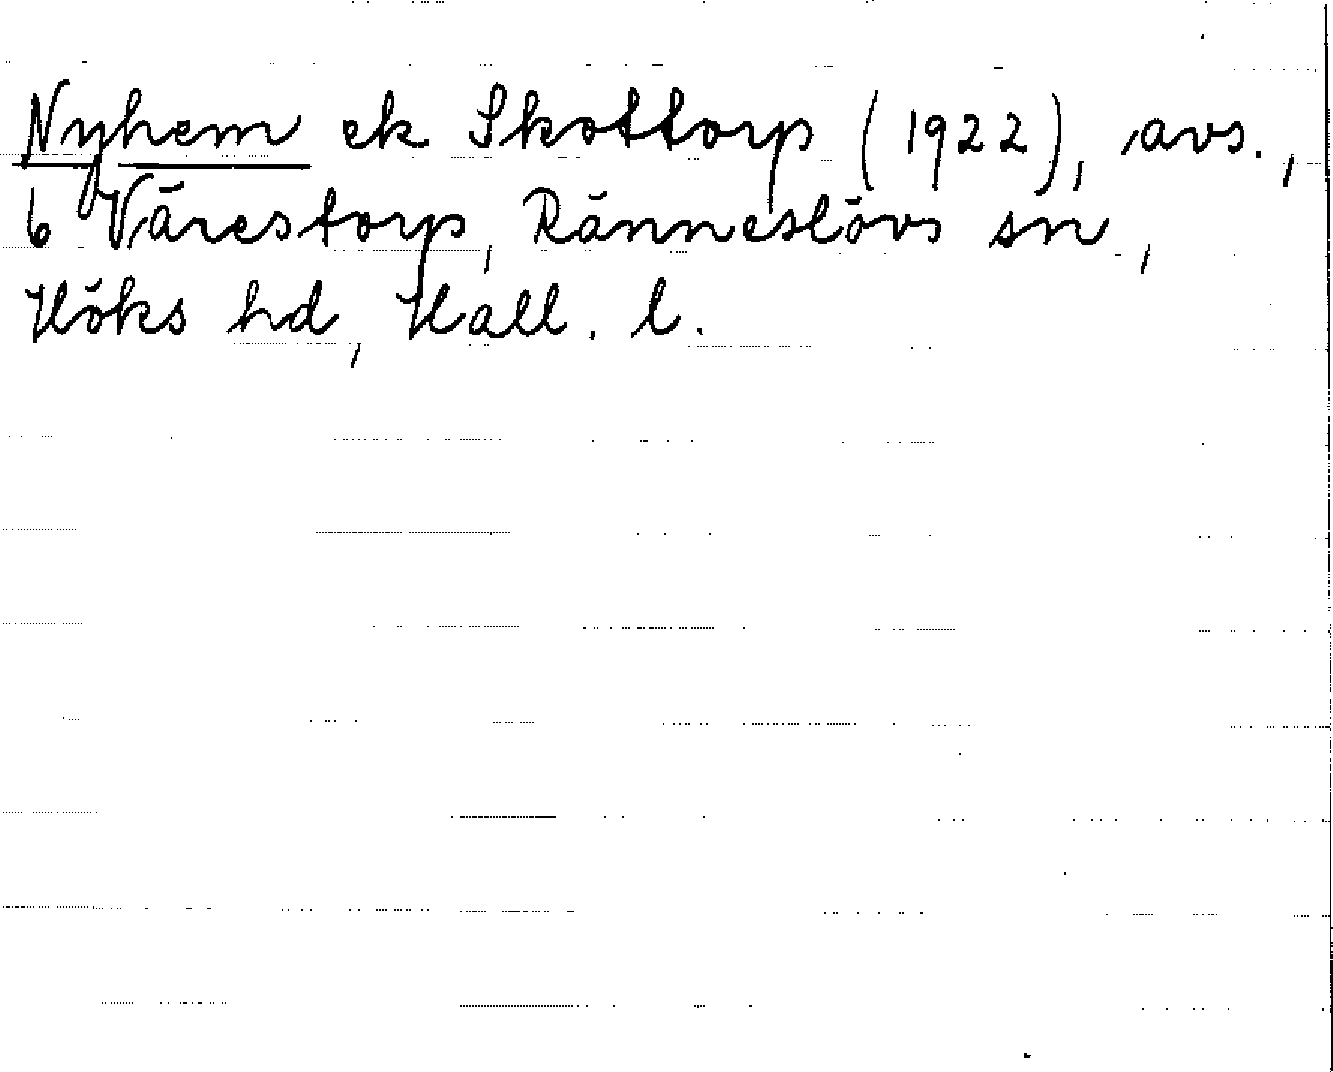 Nyhem ek Skottorp (1922), avs.,
b Vårestorp, Ränneslövs sn,
Höks hd, Hall. l.